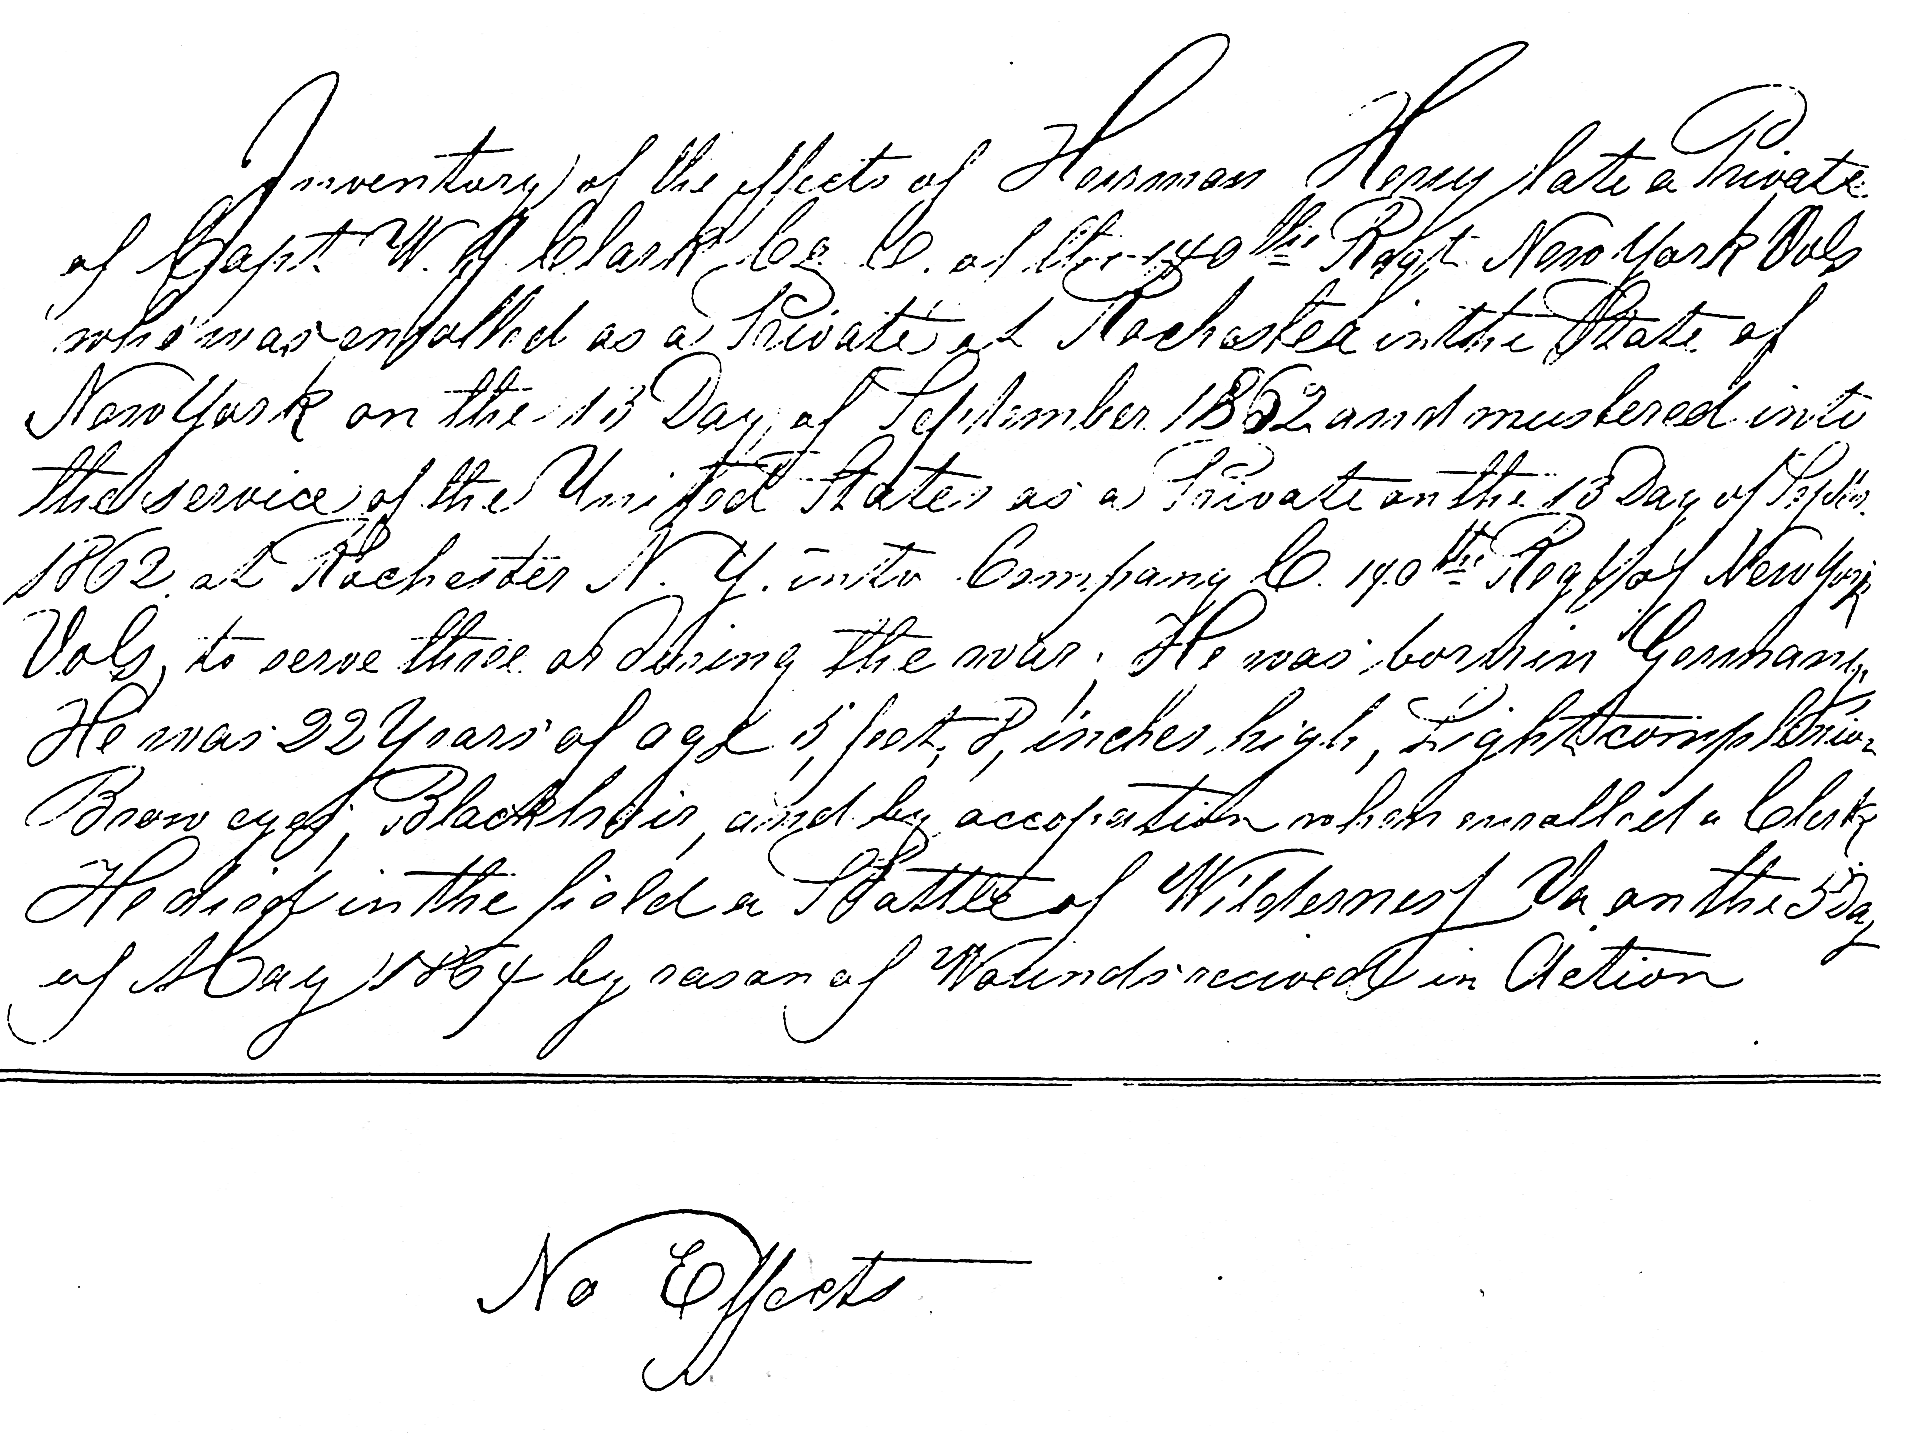 Inventory of the effects of Herrman Henry late a Private
of Capt. W. H Clark Co. C. of the 140th Regt New York Vols
who was enrolled as a Private at Rochester in the State of
New York on the 13 Day of September 1862 and mustered into
the service of the United States as a Private on the 13 Day of Septr.
1862. at Rochester N. Y. into Company C. 140th Regt of New York
Vols, to serve three or during the war. He was born in Germany,
He was 22 Years of age 5, feet, 8, inches high, Light complexion
Brow eyes, Black hair, and by accopation when enrolled a Clerk
He died in the field a Battle of Wilderness Va on the 5 Day
of May 1864 by reason of Wounds recived in Action
No Effects